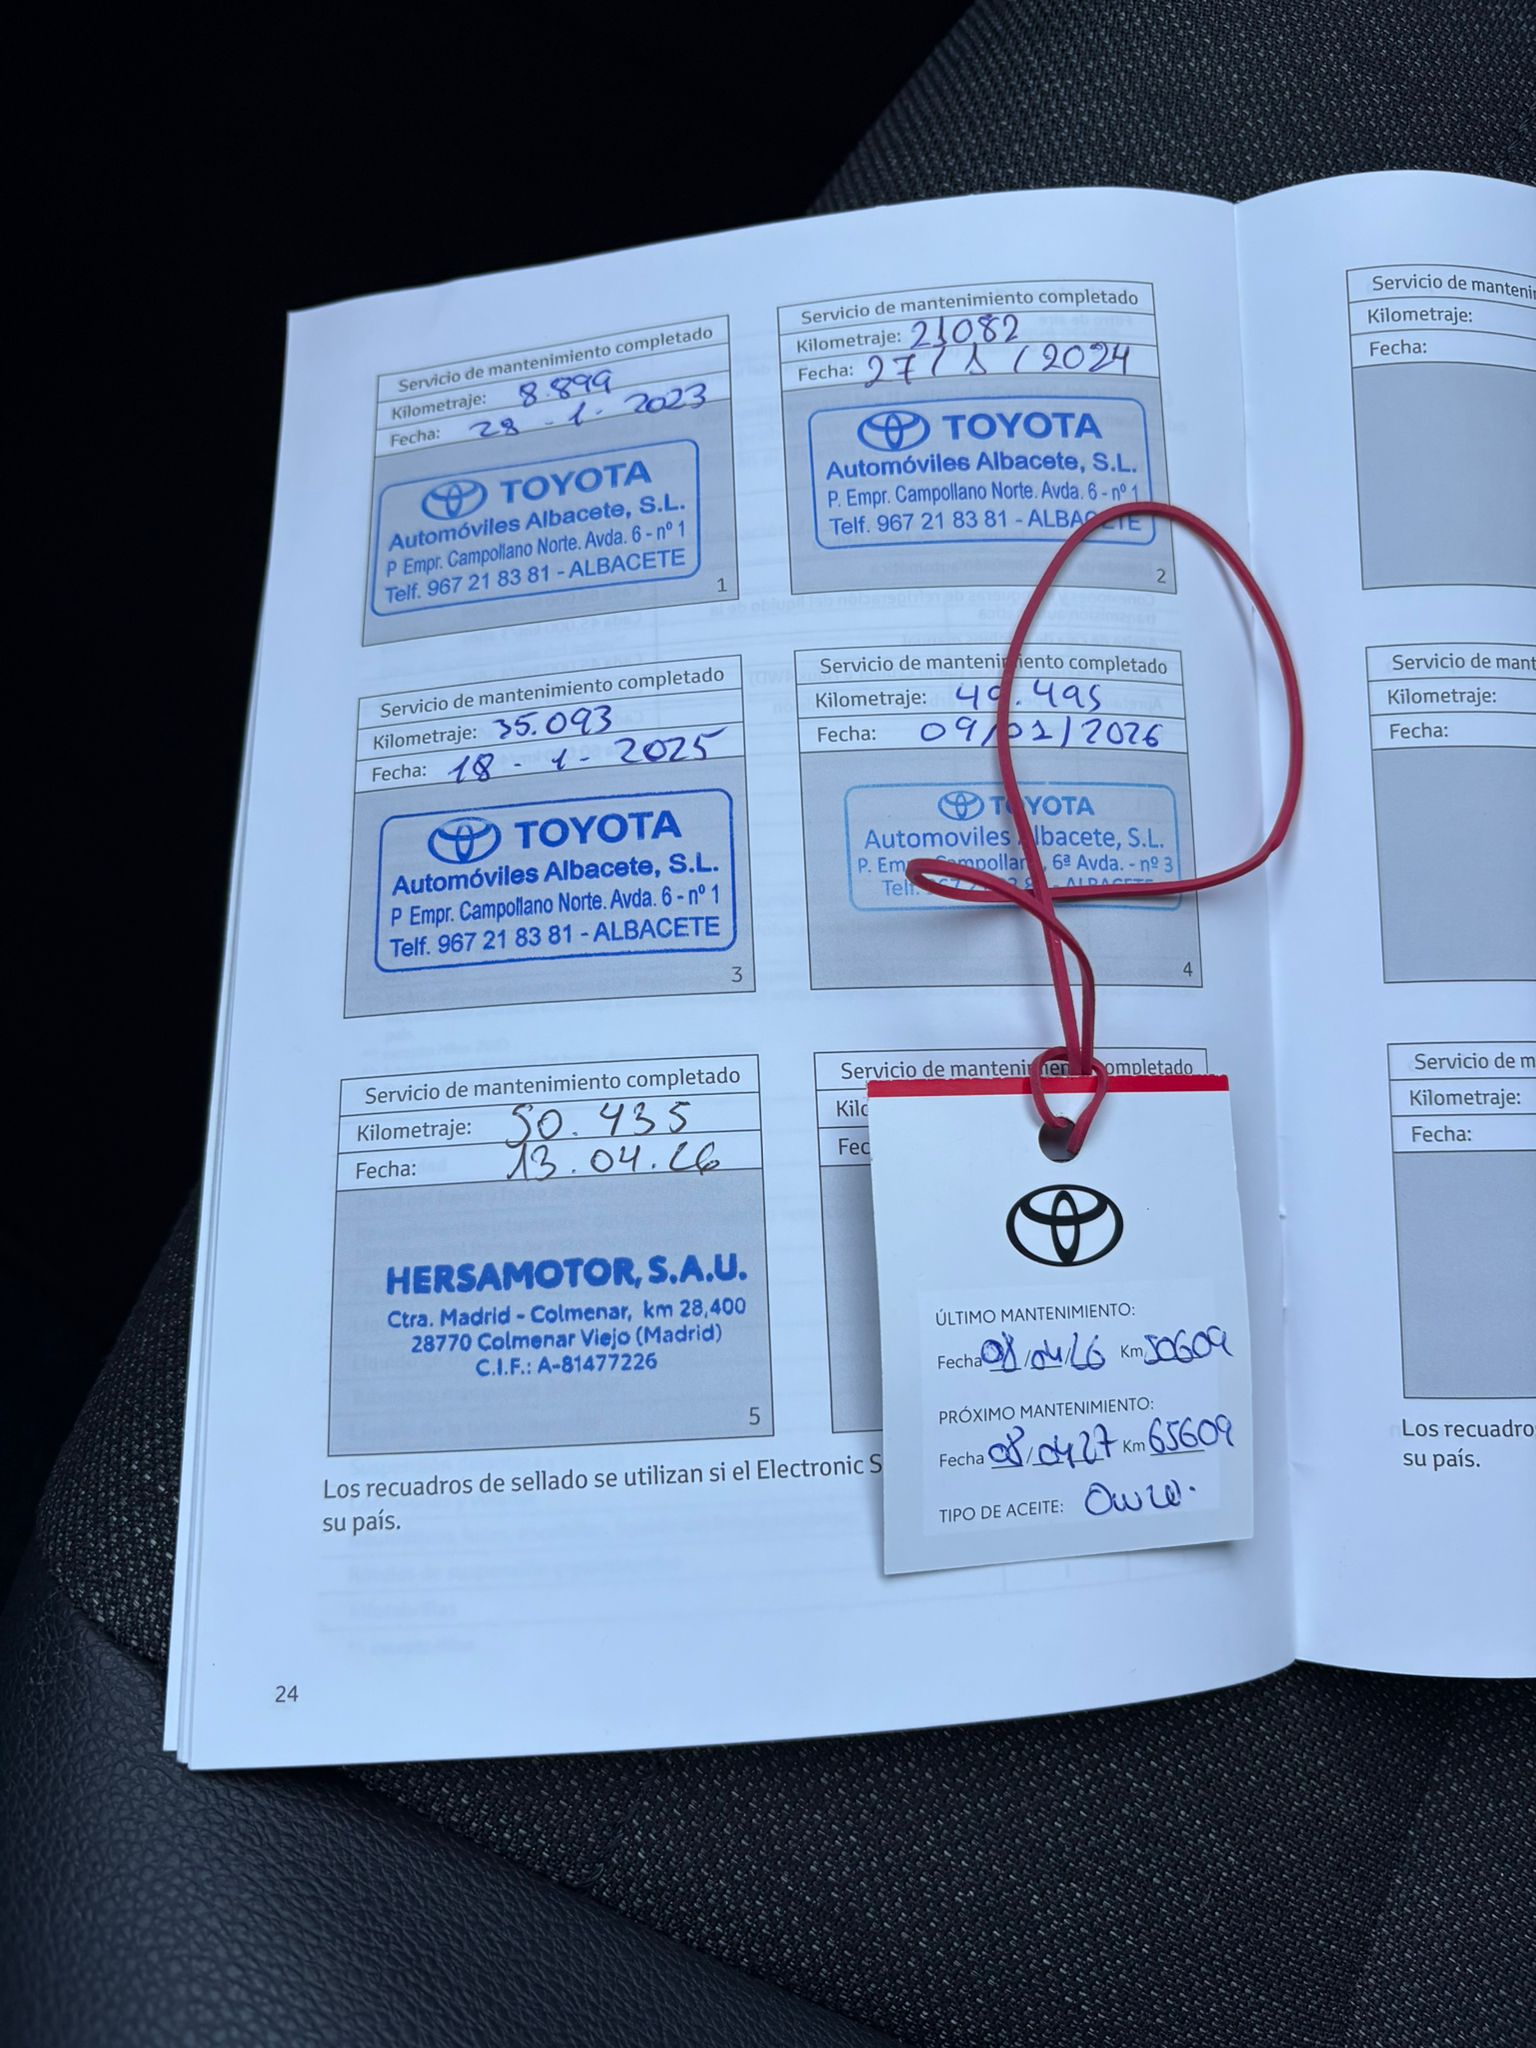 Servicio de mantenimiento completado
Kilometraje: 8.899
Fecha: 28 - 1 - 2023
TOYOTA
Automóviles Albacete, S.L.
P. Empr. Campollano Norte. Avda. 6 - nº 1
Telf. 967 21 83 81 - ALBACETE
1
Servicio de mantenimiento completado
Kilometraje: 21082
Fecha: 27/1/2024
TOYOTA
Automóviles Albacete, S.L.
P. Empr. Campollano Norte. Avda. 6 - nº 1
Telf. 967 21 83 81 - ALBACETE
2
Servicio de mantenimiento completado
Kilometraje: 35.093
Fecha: 18 - 1 - 2025
TOYOTA
Automóviles Albacete, S.L.
P. Empr. Campollano Norte. Avda. 6 - nº 1
Telf. 967 21 83 81 - ALBACETE
3
Servicio de mantenimiento completado
Kilometraje: 49.495
Fecha: 09/01/2026
TOYOTA
Automoviles Albacete, S.L.
P. Empr. Campollano, 6ª Avda. - nº 3
Telf. ALBACETE
4
Servicio de mantenimiento completado
Kilometraje: 50.435
Fecha: 13.04.26
HERSAMOTOR, S.A.U.
Ctra. Madrid - Colmenar, km 28,400
28770 Colmenar Viejo (Madrid)
C.I.F.: A-81477226
5
Servicio de mantenimiento completado
Kilo
Fec
ÚLTIMO MANTENIMIENTO:
Fecha 08/04/26 Km 50609
PRÓXIMO MANTENIMIENTO:
Fecha 08/04/27 Km 65609
TIPO DE ACEITE: 0w20.
Los recuadros de sellado se utilizan si el Electronic S
su país.
24
Servicio de manteni
Kilometraje:
Fecha:
Servicio de mant
Kilometraje:
Fecha:
Servicio de m
Kilometraje:
Fecha:
Los recuadro
su país.